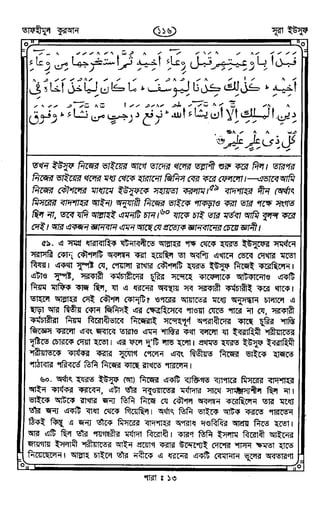 তাফহীমুল কুরআন
১১৬
সূরা ইউসুফ
فَبَدَاَ بِاَوْعِيَتِهِمْ قَبْلَ وِعَآءِ اَخِيْهِ ثُمَّ اسْتَخْرَجَهَا مِنْ وِّعَآءِ
اَخِيْهِ ؕ كَذٰلِكَ كِدْنَا لِيُوْسُفَ ؕ مَا كَانَ لِيَاْخُذَ اَخَاهُ فِىْ
دِيْنِ الْمَلِكِ اِلَّآ اَنْ يَّشَآءَ اللّٰهُ ؕ نَرْفَعُ دَرَجٰتٍ مَّنْ نَّشَآءُ ؕ وَفَوْقَ
كُلِّ ذِىْ عِلْمٍ عَلِيْمٌ
তখন ইউসুফ নিজের ভাইয়ের আগে তাদের থলের তল্লাশী শুরু করে দিল। তারপর
নিজের ভাইয়ের থলের মধ্য থেকে হারানো জিনিস বের করে ফেললো।—এভাবে আমি
নিজের কৌশলের মাধ্যমে ইউসুফকে সহায়তা করলাম।৫৯ বাদশাহর দীন (অর্থাৎ
মিসরের বাদশাহর আইন) অনুযায়ী নিজের ভাইকে পাকড়াও করা তার পক্ষে সংগত
ছিল না, তবে যদি আল্লাহই এমনটি চান।৬০ যাকে চাই তার মর্তবা আমি বুলন্দ করে
দেই। আর একজন জ্ঞানবান এমন আছে যে প্রত্যেক জ্ঞানবানের চেয়ে জ্ঞানী।
৫৯. এ সমগ্র ধারাবাহিক ঘটনাবলীতে আল্লাহর পক্ষ থেকে হযরত ইউসুফের সমর্থনে
সরাসরি কোন্ কৌশলটি অবলম্বন করা হয়েছিল তা অবশ্যি এখানে ভেবে দেখার মতো
বিষয়। একথা সুস্পষ্ট যে, পেয়ালা রাখার কৌশলটি হযরত ইউসুফ নিজেই করেছিলেন।
এটাও সুস্পষ্ট, সরকারী কর্মচারীদের চুরির সন্দেহে কাফেলাকে আটকানোও একটি
নিয়ম মাফিক কাজ ছিল, যা এ ধরনের অবস্থায় সব সরকারী কর্মচারীই করে থাকে।
তাহলে আল্লাহর সেই কৌশল কোন্‌টি? ওপরের আয়াতের মধ্যে অনুসন্ধান চালালে এ
ছাড়া আর দ্বিতীয় কোন জিনিসই এর ক্ষেত্রহিসেবে পাওয়া যেতে পারে না যে, সরকারী
কর্মচারীরা নিয়ম বিরোধীভাবে নিজেরাই সন্দেহপূর্ণ অপরাধীদের কাছে চুরির শাস্তি
জিজ্ঞেস করলো এবং জবাবে তারাও এমন শাস্তির কথা বললো যা ইবরাহিমী শরীয়াতের
দৃষ্টিতে চোরকে দেয়া হতো। এর ফলে দু'টি লাভ হলো। প্রথমত হযরত ইউসুফ ইবরাহিমী
শরীয়াতকে কার্যকর করার সুযোগ পেলেন এবং দ্বিতীয়ত নিজের ভাইকে হাজতে
পাঠাবার পরিবর্তে তিনি নিজের কাছে রাখতে পারলেন।
৬০. অর্থাৎ হযরত ইউসুফ (আ) নিজের একটি ব্যক্তিগত ব্যাপারে মিসরের বাদশাহর
আইন কার্যকর করবেন, এটা তাঁর নবুওয়াতের মর্যাদার সাথে সামঞ্জস্যশীল ছিল না।
ভাইকে আটকে রাখার জন্য তিনি নিজে যে কৌশল অবলম্বন করেছিলেন তার মধ্যে
তাঁর জন্য একটি বাধা থেকে গিয়েছিল। অর্থাৎ তিনি ভাইকে আটক করতে পারতেন
ঠিকই কিন্তু এ জন্য তাঁকে মিসরের বাদশাহর অপরাধ দণ্ডবিধির আশ্রয় নিতে হতো।
আর এটি ছিল তাঁর পয়গম্বরীর মর্যাদা বিরোধী। কারণ তিনি ইসলাম বিরোধী আইনের
জায়গায় ইসলামী শরীয়াতের আইন প্রয়োগ করার উদ্দেশ্যেই দেশের শাসন ক্ষমতা হাতে
নিয়েছিলেন। আল্লাহ চাইলে তাঁর নবীকে এ ধরনের একটি বেমানান ভুলের অবতারণা
পারা : ১৩